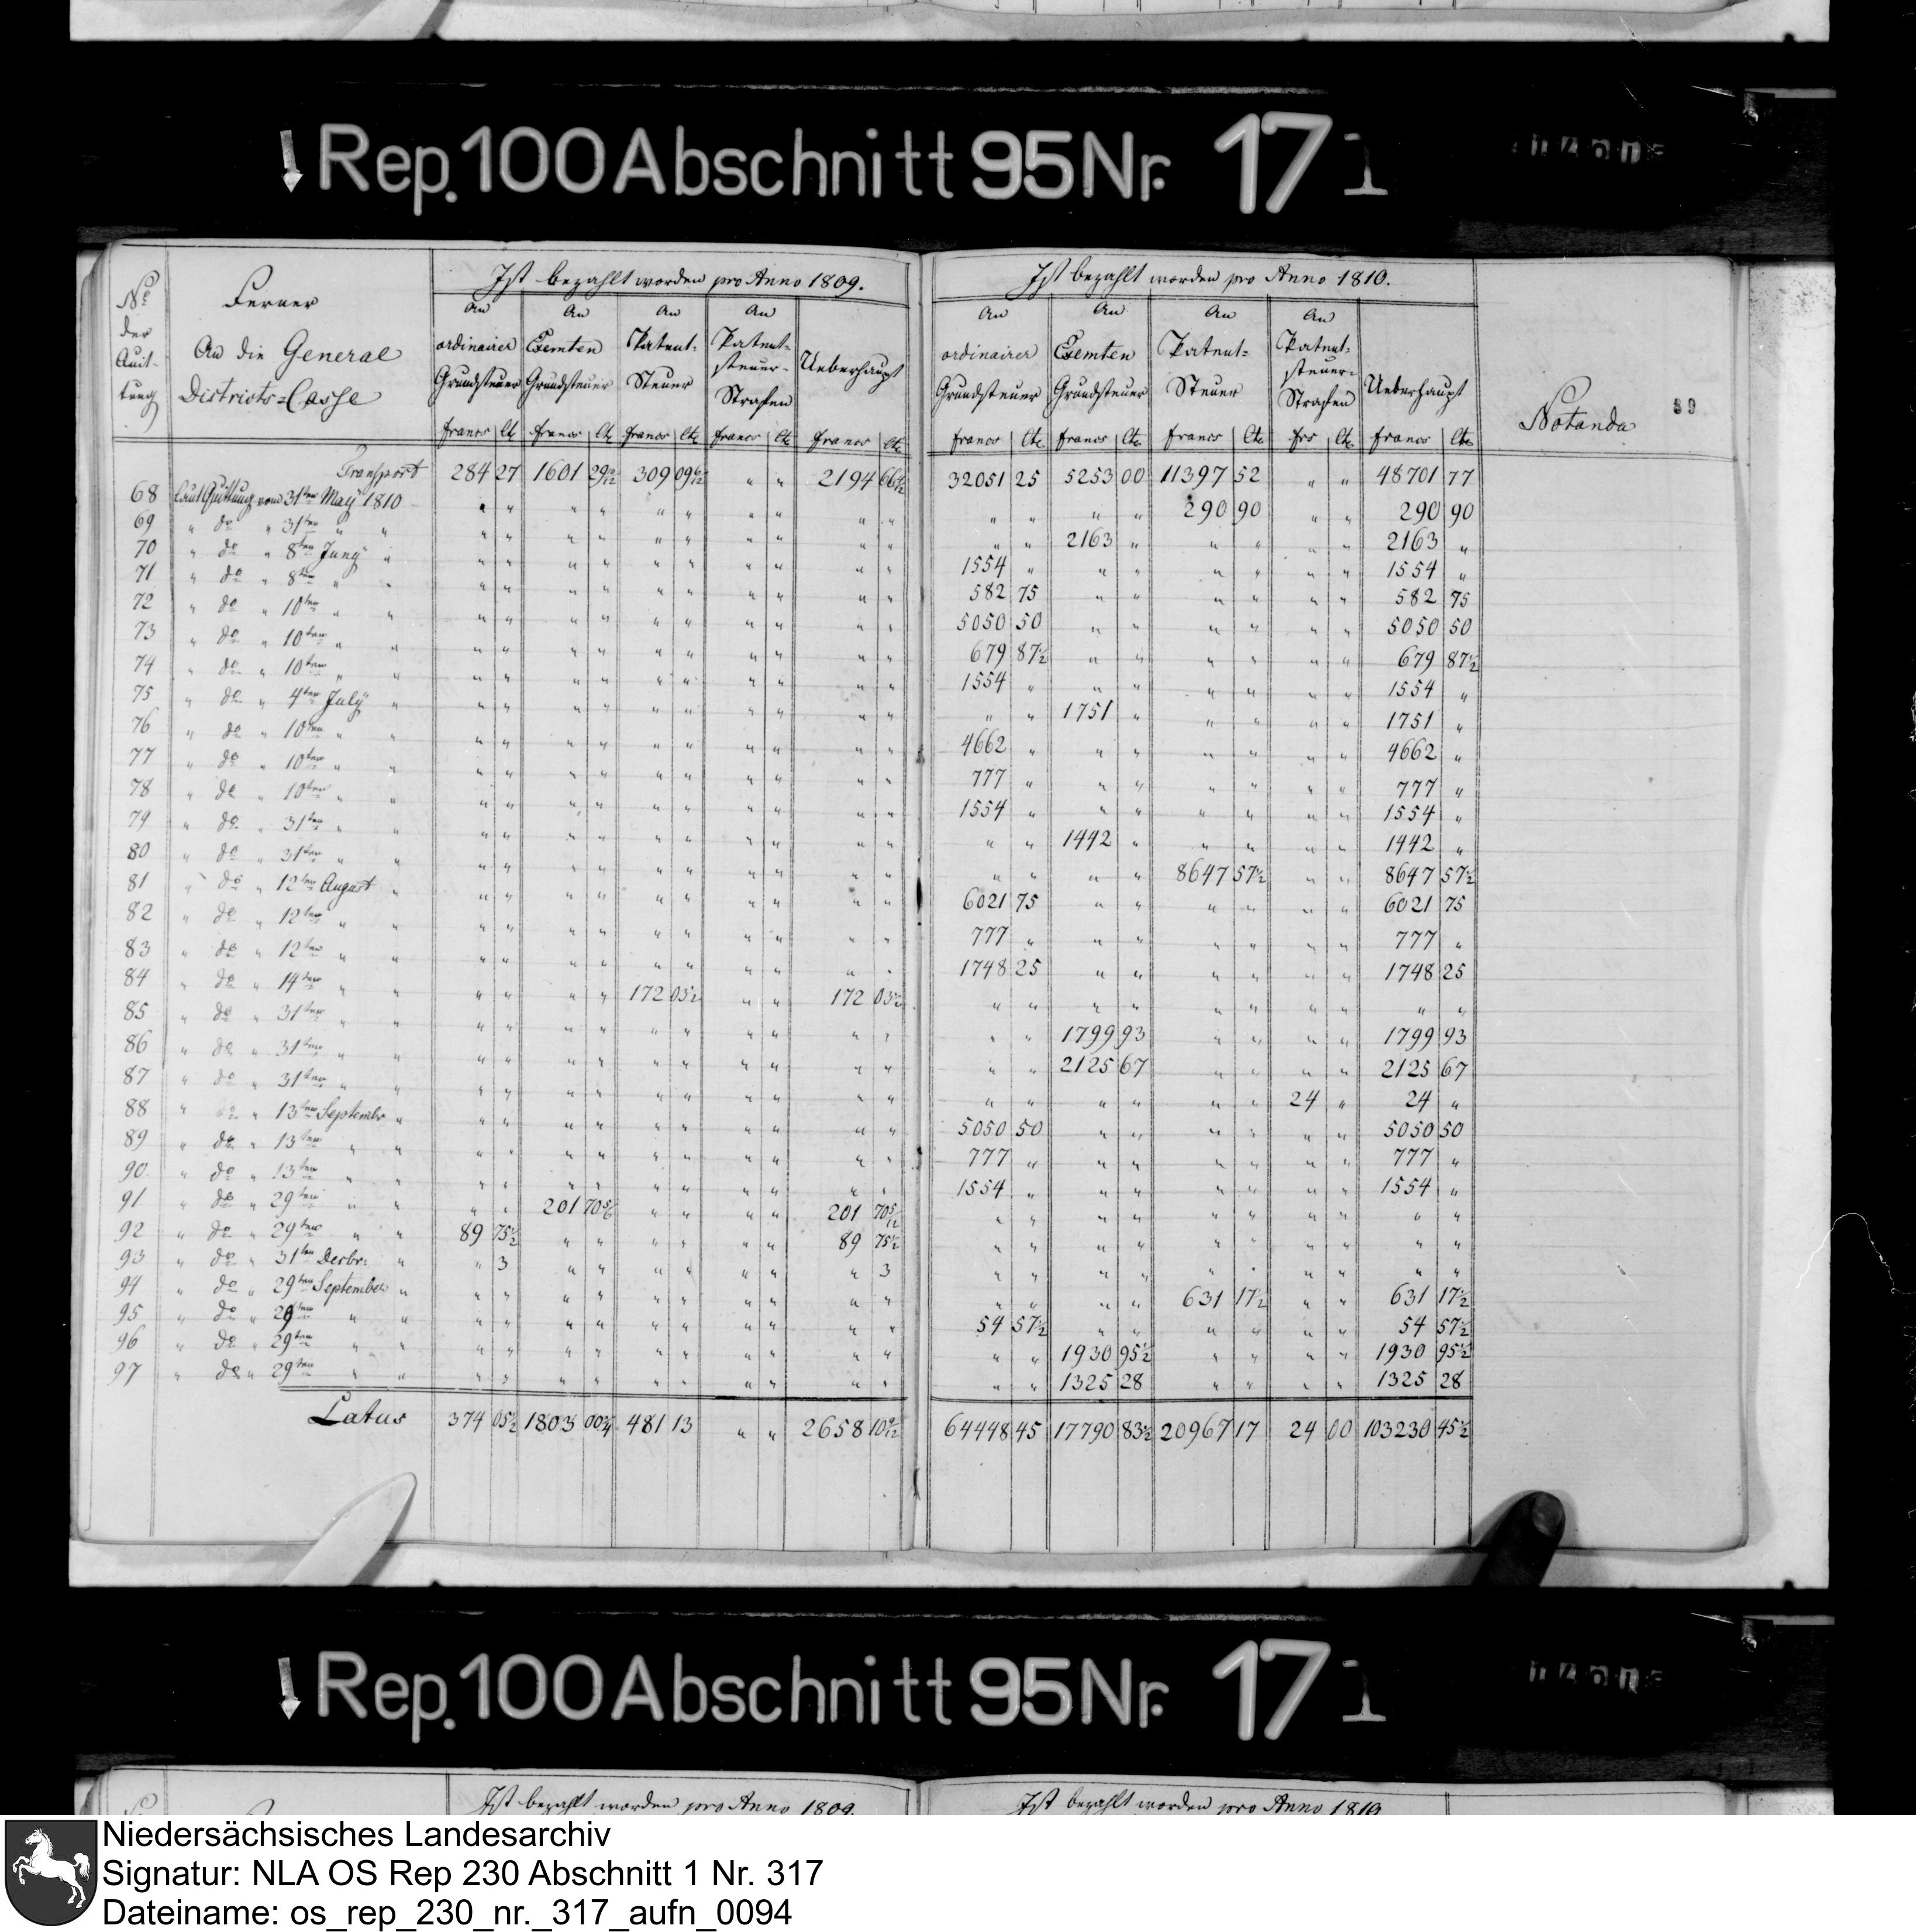 Rep. 100 Abschnitt 95 Nr. 17 1
Ist bezahlt worden pro Anno 1809. Ist bezahlt worden pro Anno 1810.
No der Quittung
Ferner An die General Districts=Casse
An ordinairer Grundsteuer An Exemten Grundsteuer An Patent-Steuer An Patent-steuer-Strafen Ueberhaupt
An ordinairer Grundsteuer An Exemten Grundsteuer An Patent=Steuer An Patent-steuer-Strafen Ueberhaupt Notanda 89
francs Ct. francs Ct. francs Ct. francs Ct. francs Ct. francs Cts francs Cts francs Cts frs Cts francs Cts
Transport 284 27 1601 309 2194 32051 25 5253 00 11397 52 " " 48701 77
68 laut Quittung vom 31ten May 1810 290 90 290 90
69 " do " 31ten " " 2163 " 2163 "
70 " do " 8ten Juny " 1554 " 1554 "
71 " do " 8ten " " 582 75 582 75
72 " do " 10ten " " 5050 50 5050 50
73 " do " 10ten " " 679 87½ 679 87½
74 " do " 10ten " " 1554 " 1554 "
75 " do " 4ten July " 1751 " 1751 "
76 " do " 10ten " " 4662 " 4662 "
77 " do " 10ten " " 777 " 777 "
78 " do " 10ten " " 1554 " 1554 "
79 " do " 31ten " " 1442 " 1442 "
80 " do " 31ten " " 8647 57½ 8647 57½
81 " do " 12ten August " 6021 75 6021 75
82 " do " 12ten " " 777 " 777 "
83 " do " 12ten " " 1748 25 1748 25
84 " do " 14ten " " 172 03½ 172 03½
85 " do " 31ten " " 1799 93 1799 93
86 " do " 31ten " " 2125 67 2125 67
87 " do " 31ten " " 24 " 24 "
88 " do " 13ten Septembr " 5050 50 5050 50
89 " do " 13ten " " 777 " 777 "
90 " do " 13ten " " 1554 " 1554 "
91 " do " 29ten " " 201 70 5/6 201
92 " do " 29ten " " 89 75½ 89 75½
93 " do " 31ten Decbr. " " 3 " 3
94 " do " 29ten September " 631 17½ 631 17½
95 " do " 29ten " " 54 57½ 54 57½
96 " do " 29ten " " 1930 95½ 1930 95½
97 " do " 29ten " " 1325 28 1325 28
Latus 374 05½ 1803 00¾ 481 13 " " 2658 64448 45 17790 83½ 20967 17 24 00 103230 45½
Rep. 100 Abschnitt 95 Nr. 17 1
Ist bezahlt worden pro Anno 1809. Ist bezahlt worden pro Anno 1810
Niedersächsisches Landesarchiv
Signatur: NLA OS Rep 230 Abschnitt 1 Nr. 317
Dateiname: os_rep_230_nr._317_aufn_0094